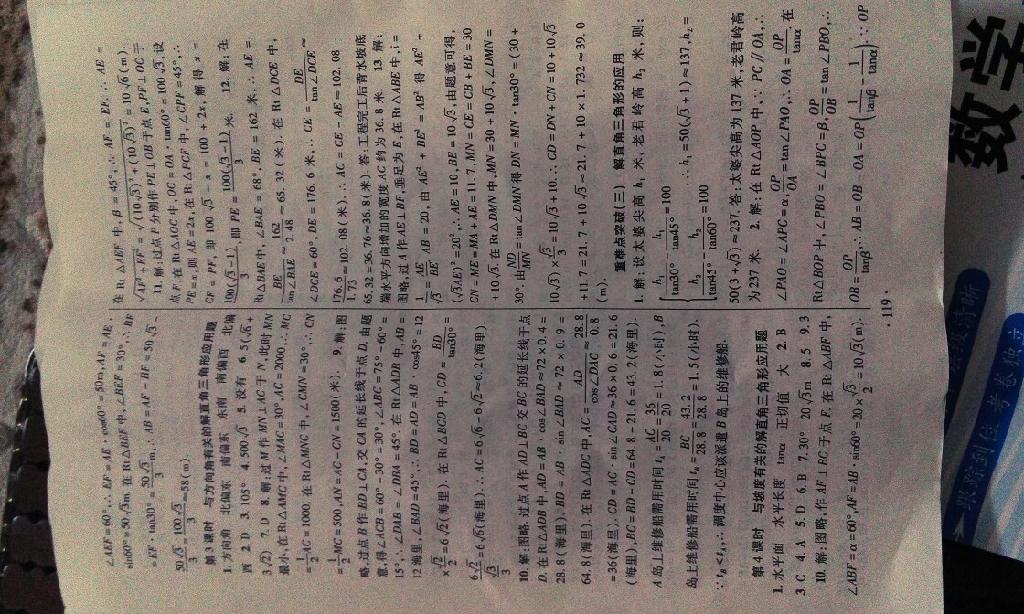 ∠AEF=60°,∴EF=AE·cos60°=50m,AF=AE·
sin60°=50√3m.在Rt△BEF中,∠BEF=30°,∴BF
=EF·tan30°=50√3/3m,∴AB=AF-BF=50√3-
50√3/3=100√3/3≈58(m).
第3课时 与方向角有关的解直角三角形应用题
1.方向角 北偏东 南偏东 东南 南偏西 北偏
西 2.D 3.105° 4.500√3 5.没有 6.5(√6+
3√2) 7.D 8.解:过M作MN⊥AC于N,此时MN
最小,在Rt△AMC中,∠MAC=30°,AC=2000,∴MC
=1/2AC=1000,在Rt△MNC中,∠CMN=30°,∴CN
=1/2MC=500,AN=AC-CN=1500(米). 9.解:图
略,过点B作BD⊥CA,交CA的延长线于点D,由题
意,得∠ACB=60°-30°=30°,∠ABC=75°-60°=
15°,∴∠DAB=∠DBA=45°.在Rt△ADB中,AB=
12海里,∠BAD=45°,∴BD=AD=AB·cos45°=12
×√2/2=6√2(海里).在Rt△BCD中,CD=BD/tan30°=
6√2/(√3/3)=6√6(海里).∴AC=6√6-6√2≈6.2(海里)
10.解:图略,过点A作AD⊥BC交BC的延长线于点
D.在Rt△ADB中AD=AB·cos∠BAD≈72×0.4=
28.8(海里),BD=AB·sin∠BAD≈72×0.9=
64.8(海里).在Rt△ADC中AC=AD/cos∠DAC≈28.8/0.8
=36(海里),CD=AC·sin∠CAD≈36×0.6=21.6
(海里),BC=BD-CD=64.8-21.6=43.2(海里).
A岛上维修船需用时间tA=AC/20=36/20=1.8(小时),B
岛上维修船需用时间tB=BC/28.8=43.2/28.8=1.5(小时).
∵tB<tA,∴调度中心应该派遣B岛上的维修船.
第4课时 与坡度有关的解直角三角形应用题
1.水平面 水平长度 tanα 正切值 大 2.B
3.C 4.A 5.D 6.B 7.30° 20√5m 8.5 9.3
10.解:图略,作AF⊥BC于点F,在Rt△ABF中,
∠ABF=α=60°,AF=AB·sin60°=20×√3/2=10√3(m).
在Rt△AEF中,β=45°,∴AF=EF.∴AE=
√(AF²+EF²)=√((10√3)²+(10√3)²)=10√6(m).
11.解:过点P分别作PE⊥OB于点E,PF⊥OC于
点F.在Rt△AOC中,OC=OA·tan60°=100√3.设
PE=x,则AE=2x,在Rt△PCF中,∠CPF=45°,∴
CF=PF,即100√3-x=100+2x,解得x=
100(√3-1)/3,即PE=100(√3-1)/3米. 12.解:在
Rt△BAE中,∠BAE=68°,BE=162米,∴AE=
BE/tan∠BAE≈162/2.48≈65.32(米).在Rt△DCE中,
∠DCE=60°,DE=176.6米,∴CE=DE/tan∠DCE≈
176.6/1.73≈102.08(米).∴AC=CE-AE≈102.08
65.32=36.76≈36.8(米).答:工程完工后背水坡底
端水平方向增加的宽度AC约为36.8米. 13.解:
图略,过A作AE⊥BF,垂足为E,在Rt△ABE中,i=
1/√3=AE/BE,AB=20,由AE²+BE²=AB²得AE²+
(√3AE)²=20²,∴AE=10,BE=10√3,由题意可得,
CN=ME=MA+AE=11.7,MN=CE=CB+BE=30
+10√3.在Rt△DMN中,MN=30+10√3,∠DMN=
30°,由ND/MN=tan∠DMN得DN=MN·tan30°=(30+
10√3)×√3/3=10√3+10.∴CD=DN+CN=10+10√3
+11.7=21.7+10√3≈21.7+10×1.732≈39.0
(m).
重难点突破(三) 解直角三角形的应用
1.解:设太婆尖高h₁米,老君岭高h₂米,则:
{h₁/tan30°-h₁/tan45°=100
h₂/tan45°-h₂/tan60°=100
∴h₁=50(√3+1)≈137,h₂=
50(3+√3)≈237.答:太婆尖高为137米,老君岭高
为237米. 2.解:在Rt△AOP中,∵PC//OA,∴
∠PAO=∠APC=α,OP/OA=tan∠PAO,∴OA=OP/tanα.在
Rt△BOP中,∠PBO=∠BPC=β,OP/OB=tan∠PBO,∴
OB=OP/tanβ.∴AB=OB-OA=OP(1/tanβ-1/tanα).∵OP
·119·
数学
跟踪到位 考卷独立